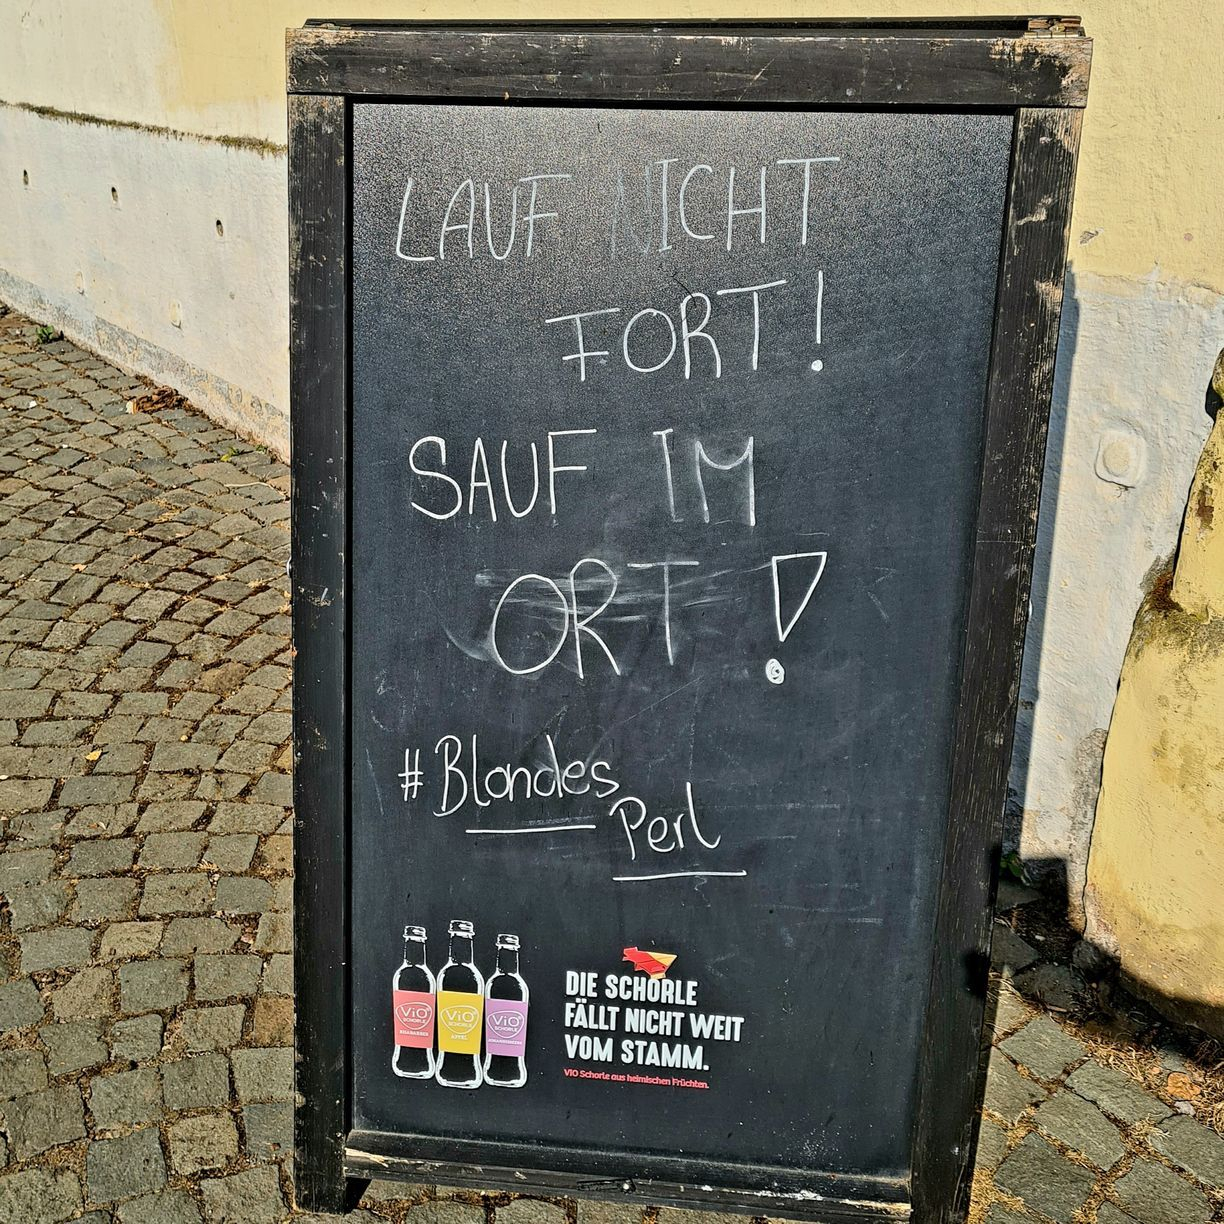 LAUF NICHT
FORT!
SAUF IM
ORT!
#Blondes
Perl
ViO
SCHORLE
RHABARBER
ViO
SCHORLE
APFEL
ViO
SCHORLE
JOHANNISBEERE
DIE SCHORLE
FÄLLT NICHT WEIT
VOM STAMM.
VIO Schorle aus heimischen Früchten.